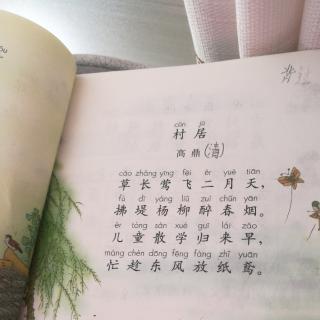 背
cūn jū
村居
高鼎(清)
cǎo zhǎng yīng fēi èr yuè tiān
草长莺飞二月天，
fú dī yáng liǔ zuì chūn yān
拂堤杨柳醉春烟。
ér tóng sàn xué guī lái zǎo
儿童散学归来早，
máng chèn dōng fēng fàng zhǐ yuān
忙趁东风放纸鸢。